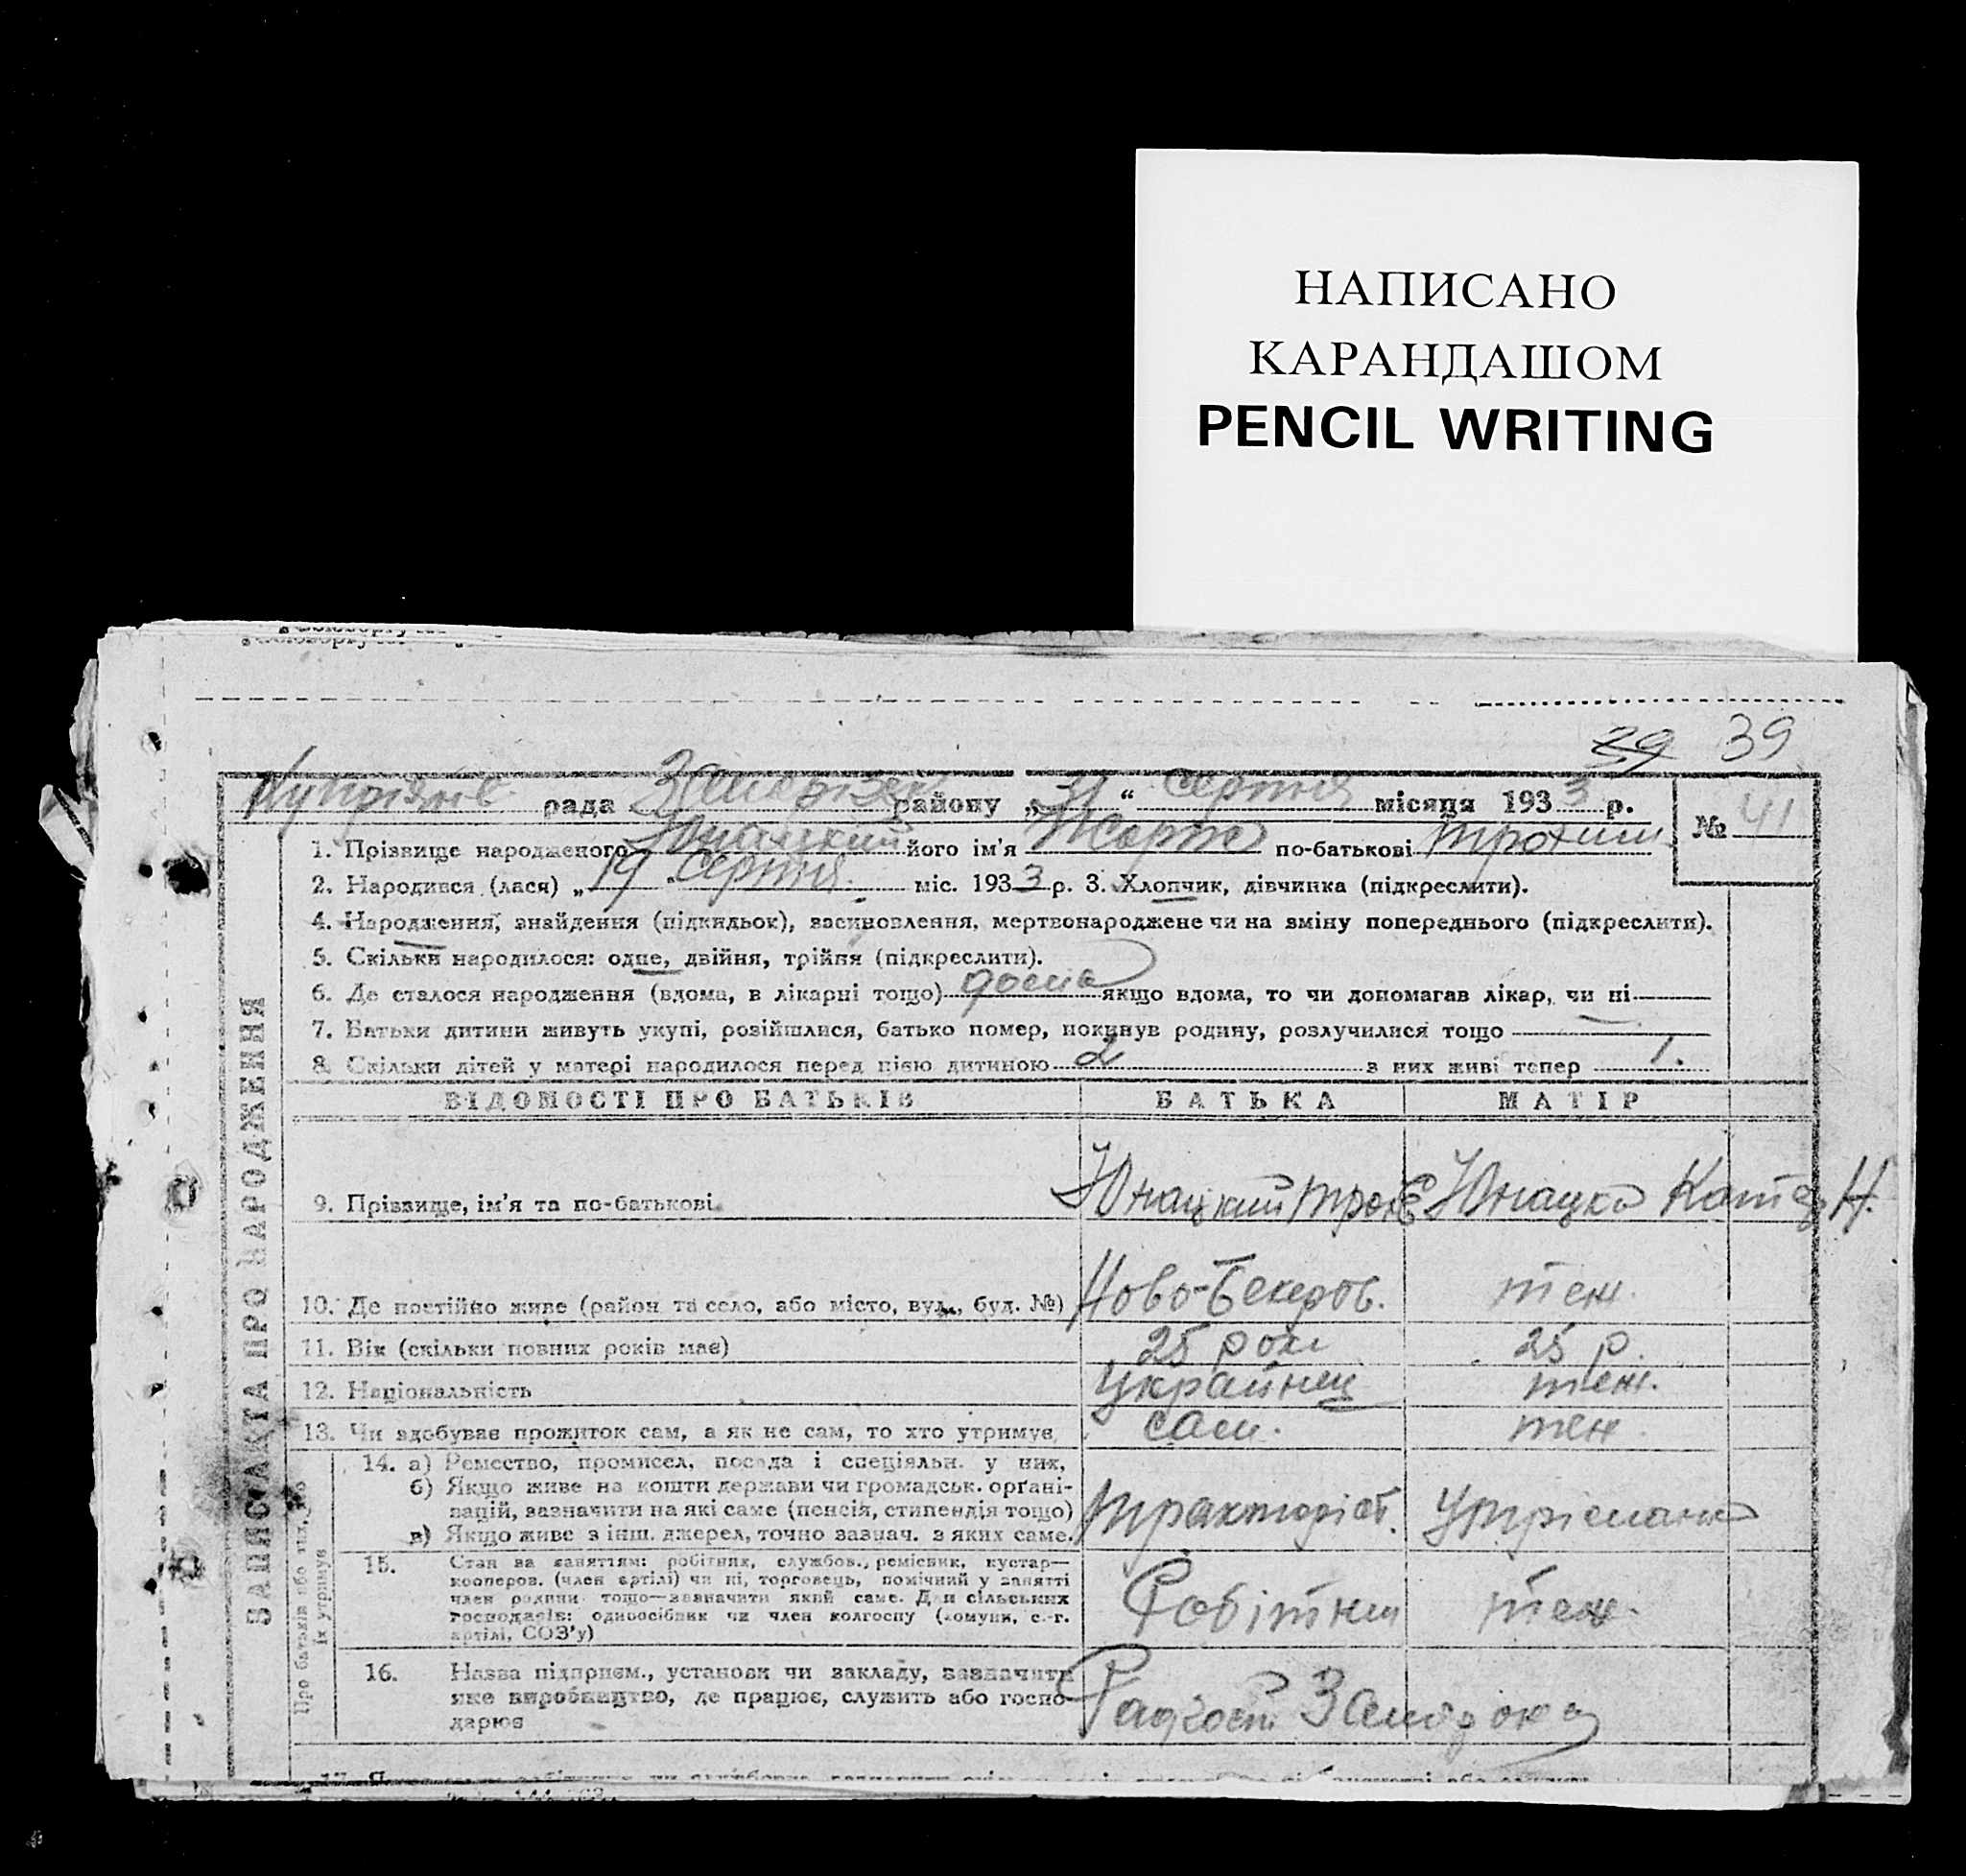 НАПИСАНО
КАРАНДАШОМ
PENCIL WRITING
39 39
рада району „31“ Серпня місяця 1933 р.
№ 41
1. Прізвище народженого Юнацкий його ім'я по-батькові Трохим
2. Народився (лася) „19 Серпня міс. 1933 р. 3. Хлопчик, дівчинка (підкреслити).
4. Народження, знайдення (підкидьок), засиновлення, мертвонароджене чи на зміну попереднього (підкреслити).
5. Скільки народилося: одне, двійня, трійня (підкреслити).
6. Де сталося народження (вдома, в лікарні тощо) дома якщо вдома, то чи допомагав лікар, чи ні
7. Батьки дитини живуть укупі, розійшлися, батько помер, покинув родину, розлучилися тощо
8. Скільки дітей у матері народилося перед цією дитиною 2 з них живі тепер 1.
ЗАПИС АКТА ПРО НАРОДЖЕННЯ
ВІДОМОСТІ ПРО БАТЬКІВ БАТЬКА МАТІР
9. Прізвище, ім'я та по-батькові Юнацкий Трох Є Юнацка Катер Н.
10. Де постійно живе (район та село, або місто, вул., буд. №) Ново- теж.
11. Вік (скільки повних років має) 25 рокі 25 р.
12. Національність Українец теж.
13. Чи здобуває прожиток сам, а як не сам, то хто утримує сам. теж.
Про батьків або тих, хто їх утримує
14. а) Ремество, промисел, посада і спеціяльн. у них,
б) Якщо живе на кошти держави чи громадськ. орґані-
зацій, зазначити на які саме (пенсія, стипендія тощо)
в) Якщо живе з інш. джерел, точно зазнач. з яких саме. Тракторіст. Утріманка
15. Стан за заняттям: робітник, службов., ремісник, кустар—
кооперов. (член артілі) чи ні, торговець, помічний у занятті
член родини тощо—зазначити який саме. Для сільських
господарів: одноосібник чи член колгоспу (комуни, с.-г.
артілі, СОЗ'у) Робітник теж.
16. Назва підприєм., установи чи закладу, зазначити
яке виробництво, де працює, служить або госпо-
дарює Радгосп